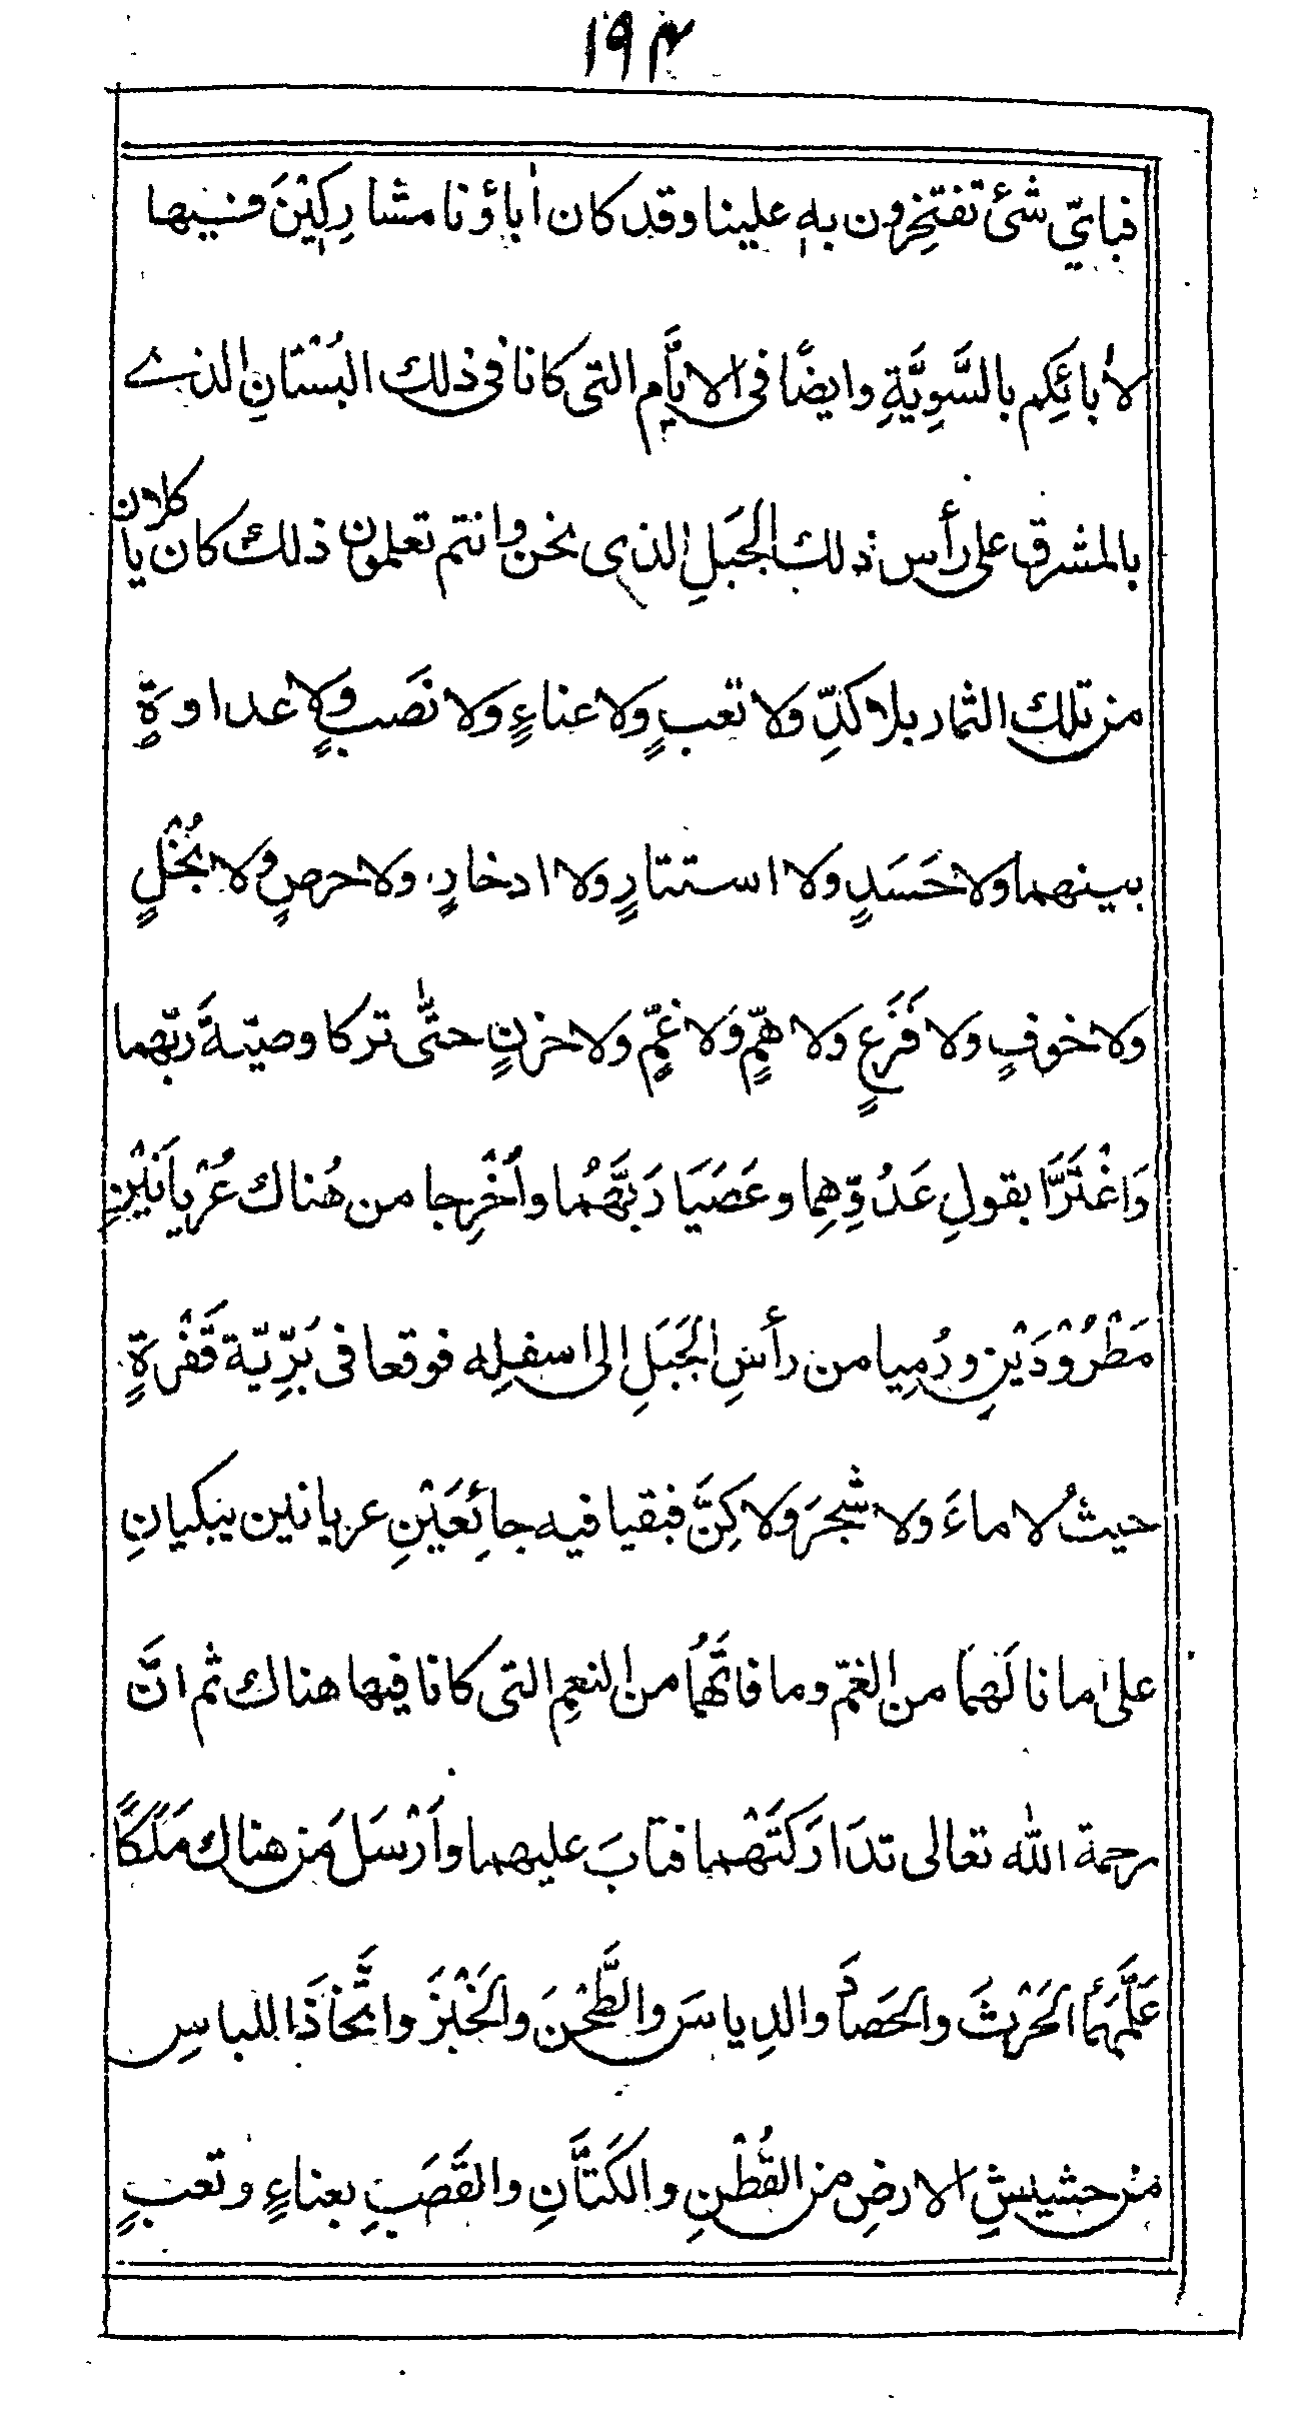 ۱۹۴
فبايّ شئ تفتخِرون بهٖ علينا وقد كان اٰباؤنا مشاركِيْنَ فيها
لاٰبائكِم بالسَّوِيَّةِ وايضًا فى الايّام التى كانا فى ذلك البُسْتانِ الذے
بالمشرق على رأس ذلك الجبَلِ الذى نحن وانتم تعلمون ذلك كان ياكلان
من تلك الثمار بلا كدٍّ ولا تعبٍ ولا عناءٍ ولا نَصَبٍ ولا عداوةٍ
بينهما ولا حَسَدٍ ولا استتارٍ ولا ادخارٍ ولا حرصٍ ولا بُخْلٍ
ولا خوفٍ ولا فَزَعٍ ولا همٍّ ولا غمٍّ ولا خزنٍ حتّٰى تركا وصيّةَ ربّهما
وَاغْتَرَّا بقولِ عَدُوِّهِما وعَصَيَا رَبَّهُما واُخْرِجا من هُناك عُرْيانَيْنِ
مَطْرُوْدَيْنِ ورُمِيا من رأسِ الجَبَلِ الى اسفلِه فوقعا فى بَرِّيّة قَفْرةٍ
حيثُ لا ماءَ ولا شجرَ ولا كِنَّ فبقيا فيه جائِعَيْنِ عريانين يبكيانِ
علىٰ ما نالَهما من الغمّ وما فاتَهُما من النعِم التى كانا فيها هناك ثم انَّ
رحمة الله تعالى تدَارَكَتْهما فتابَ عليهما واَرْسَلَ من هناك مَلَكًا
عَلَّمَهُما الحَرْثَ والحَصادَ والدِياسَ والطَّحْنَ والخَبْزَ واتّخاذَ اللباسِ
منْ حشيشِ الارضِ من القُطْنِ والكَتَّانِ والقَصَبِ بعناءٍ وتعبٍ